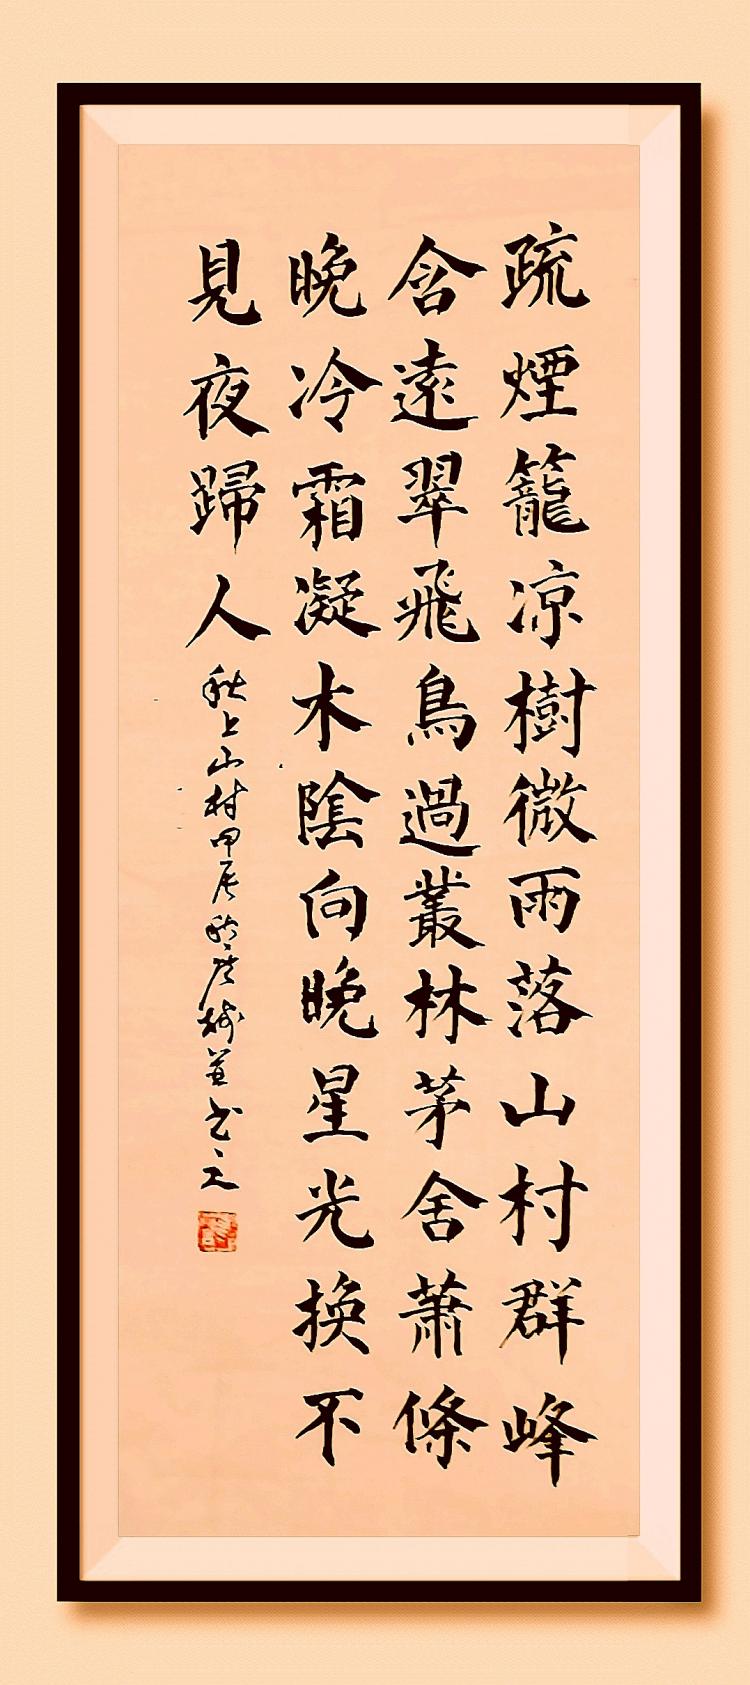 疏煙籠凉樹微雨落山村群峰
含遠翠飛鳥過叢林茅舍蕭條
晚冷霜凝木陰向晚星光換不
見夜歸人
秋上山村甲辰秋於廣城並書之